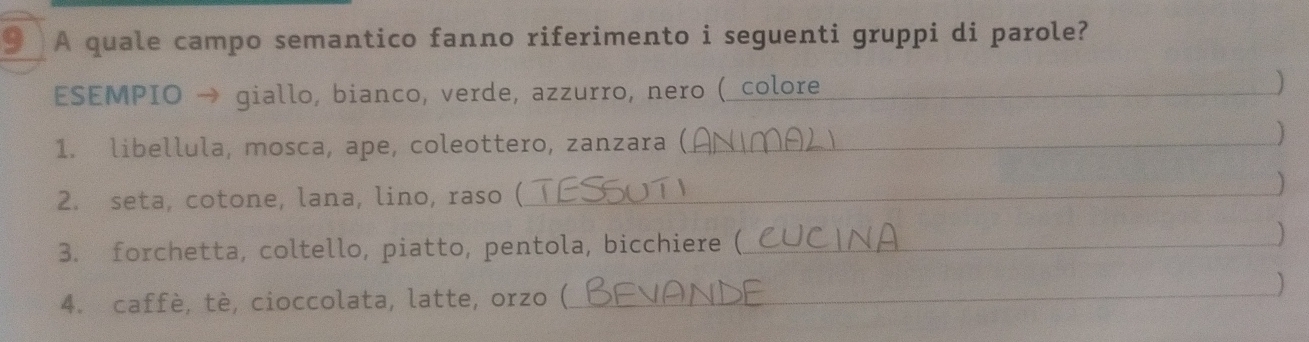 9 A quale campo semantico fanno riferimento i seguenti gruppi di parole?
ESEMPIO → giallo, bianco, verde, azzurro, nero ( colore )
1. libellula, mosca, ape, coleottero, zanzara (ANIMALI )
2. seta, cotone, lana, lino, raso ( TESSUTI )
3. forchetta, coltello, piatto, pentola, bicchiere ( CUCINA )
4. caffè, tè, cioccolata, latte, orzo ( BEVANDE )